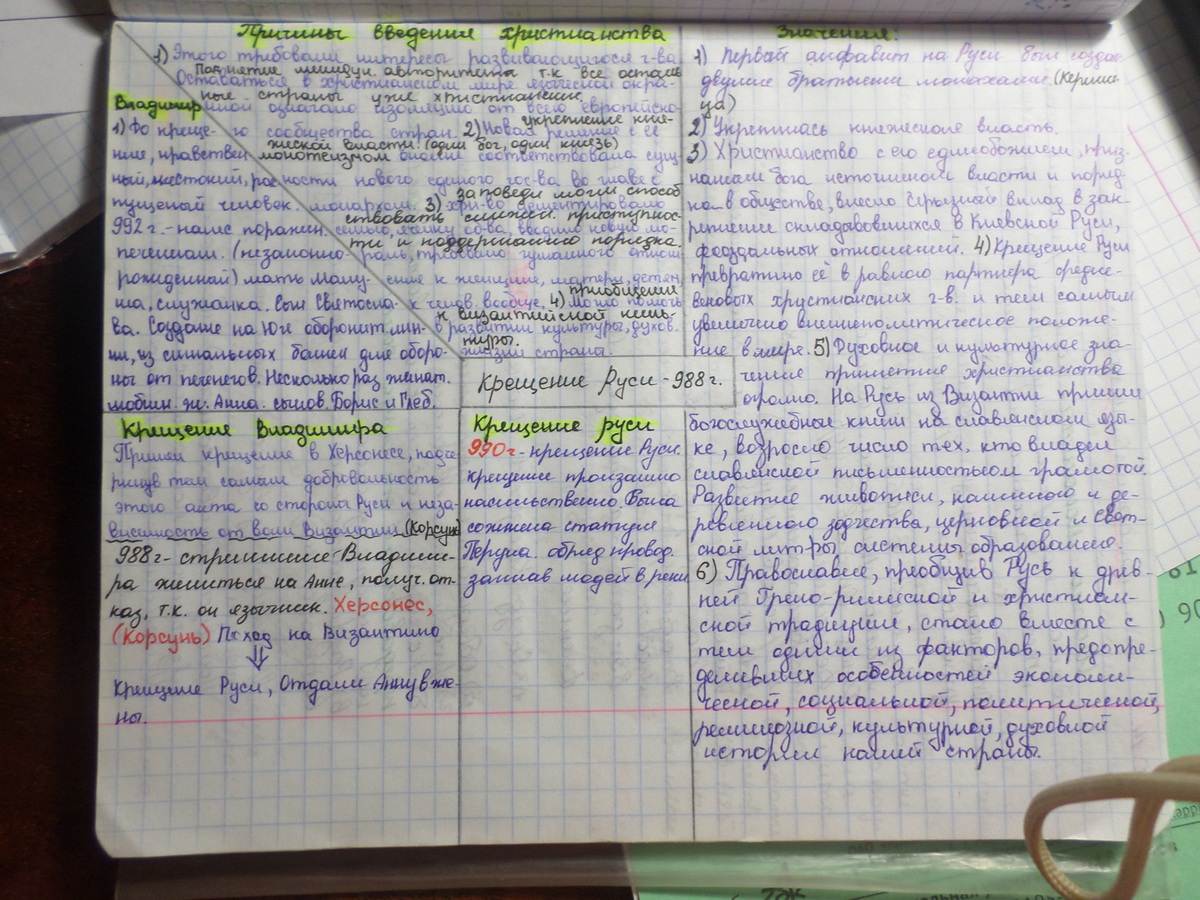 Причины введения христианства
1) Этого требовали интересы развивающегося г-ва
Поднятие междун. авторитета т.к. все осталь
Оставаться в христианском мире языческой окра-
ные страны уже христианские.
иной означало изоляцию от всего европейско-
го сообщества стран. 2) Новая религия с её
укрепление кня-
жеской власти (один бог, один князь)
монотеизмом вполне соответствовала сущ-
ности нового единого гос-ва во главе с
монархом. 3) хри-во цементировало
заповеди могли способ
ствовать снижен. приступнос-
семью, ячейку об-ва, вводило новую мо-
ти и поддержанию порядка.
раль, требовало гуманного отнош
ения к женщине, матери, детям
к челов. вообще. 4) Могло помочь
приобщении
к византийской куль-
туры.
в развитии культуры, духов.
жизни страны.
Владимир
1) До креще-
ние, нравствен
ный, жестокий, рас-
пущеный человек.
992 г. - нанс поражен.
печенегам. (незаконно-
рожденный) мать Малу-
ша, служанка. сын Святосла-
ва. Создание на Юге оборонит. лин-
ии, из сигнальных башен для оборо-
ны от печенегов. Несколько раз женат.
любим. ж. Анна. сынов. Борис и Глеб.
Значение:
1) Первый алфавит на Руси был создан
двумя братьями монахами (Кирилли-
ца)
2) Укрепилась княжеская власть.
3) Христианство с его единобожием, приз-
нанием бога источником власти и поряд-
ка в обществе, внесло серьёзный вклад в зак-
репление складывавшихся в Киевской Руси,
феодальных отношений. 4) Крещение Руси
превратило её в равного партнера средне-
вековых христианских г-в. и тем самым
увеличило внешнеполитическое положе-
ние в мире. 5) Духовное и культурное зна-
чение принятие христианства
огромно. На Русь из Византии пришли
богослужебные книги на славянском язы-
ке, возросло число тех, кто владел
славянской письменностьюи грамотой.
Развитие живописи, каменного и де-
ревянного зодчества, церковной и Свет-
ской литры, системы образования.
6) Православие, преобщив Русь к древ-
ней Греко-римской и христиан-
ской традиции, стало вместе с
тем одним из факторов, предопре-
деливших особенностей экономи-
ческой, социальной, политической,
религиозной, культурной, духовной
истории нашей страны.
Крещение Руси - 988 г.
Крещение Владимира
Принял крещение в Херсонесе, подче
ркнув тем самым добровольность
этого акта со стороны Руси и неза-
висимость от воли Византии. (Корсунь)
988 г - стремление Владими-
ра жениться на Анне, получ. от-
каз, т.к. он язычник. Херсонес,
(Корсунь) Поход на Византию
⇓
Крещение Руси, Отдали Анну в же-
ны.
Крещение руси
990 г - крещение Руси.
крещение произашло
насильственно. Была
сожжена статуя
Перуна. обряд провод.
загнав людей в реки